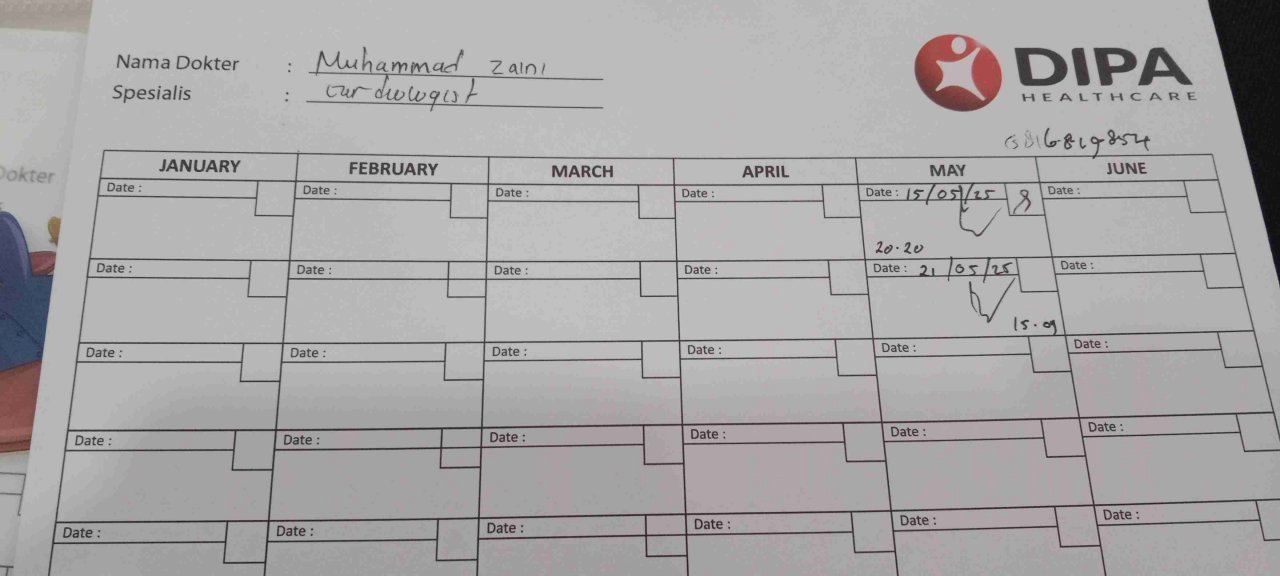 Nama Dokter : Muhammad Zaini
Spesialis : Cardiologist
DIPA
HEALTHCARE
0816819854
JANUARY FEBRUARY MARCH APRIL MAY JUNE
Date : Date : Date : Date : Date : 15/05/25 8 Date :
20.20
Date : Date : Date : Date : Date : 21/05/25 Date :
15.09
Date : Date : Date : Date : Date : Date :
Date : Date : Date : Date : Date : Date :
Date : Date : Date : Date : Date : Date :
Dokter